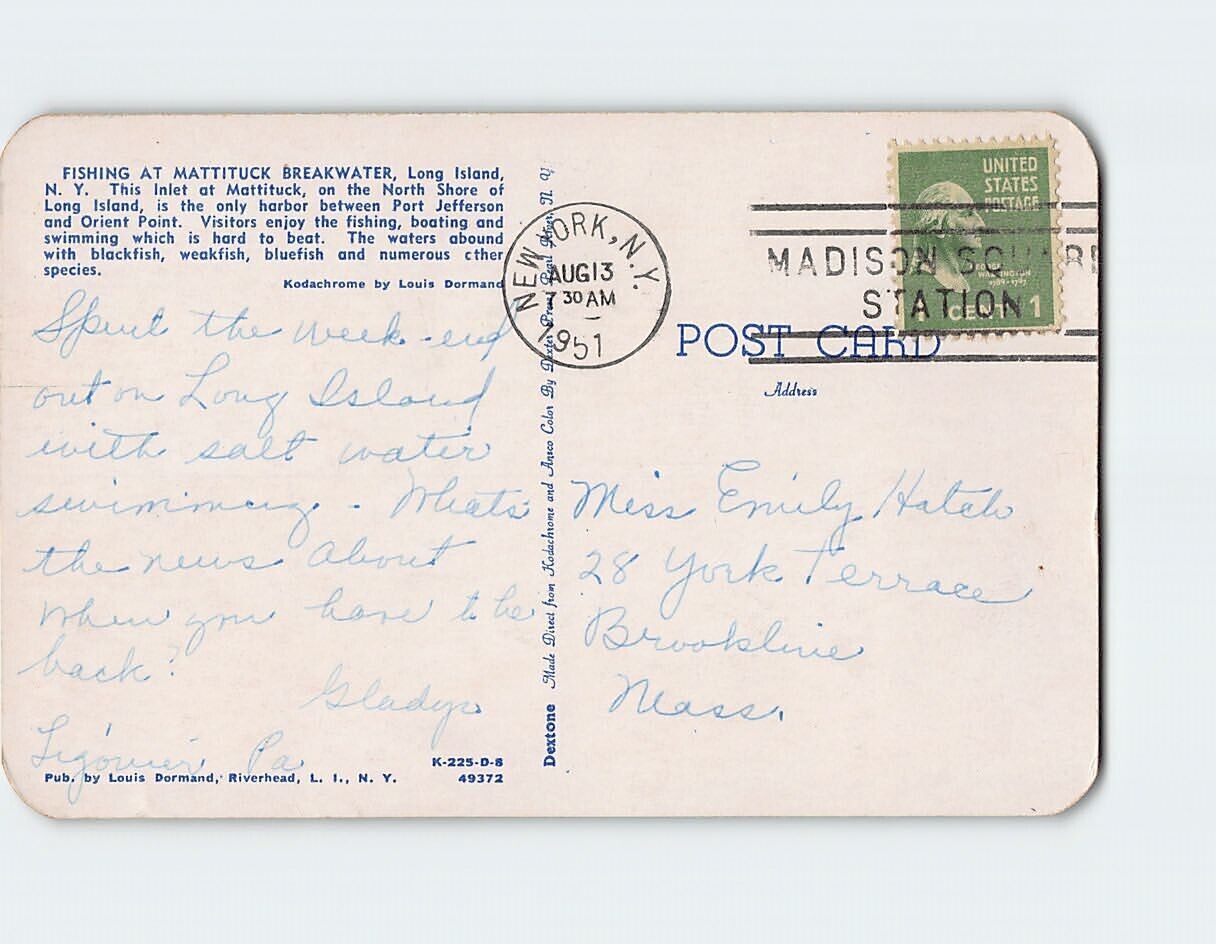 FISHING AT MATTITUCK BREAKWATER, Long Island,
N. Y. This Inlet at Mattituck, on the North Shore of
Long Island, is the only harbor between Port Jefferson
and Orient Point. Visitors enjoy the fishing, boating and
swimming which is hard to beat. The waters abound
with blackfish, weakfish, bluefish and numerous other
species.
Kodachrome by Louis Dormand
Spent the week-end
out on Long Island
with salt water
swimming. - Whats
the news about
when you have to be
back?
Gladys
Ligonier Pa
K-225-D-8
Pub. by Louis Dormand, Riverhead, L. I., N. Y. 49372
Dextone Made Direct from Kodachrome and Ansco Color By Dexter Press Pearl River, N. Y.
NEW YORK, N.Y.
AUG 13
7 30 AM
1951
UNITED
STATES
POSTAGE
GEORGE
WASHINGTON
1789-1797
1 CENT 1
MADISON SQUARE
STATION
POST CARD
Address
Miss Emily Hatch
28 York Terrace
Brookline
Mass.